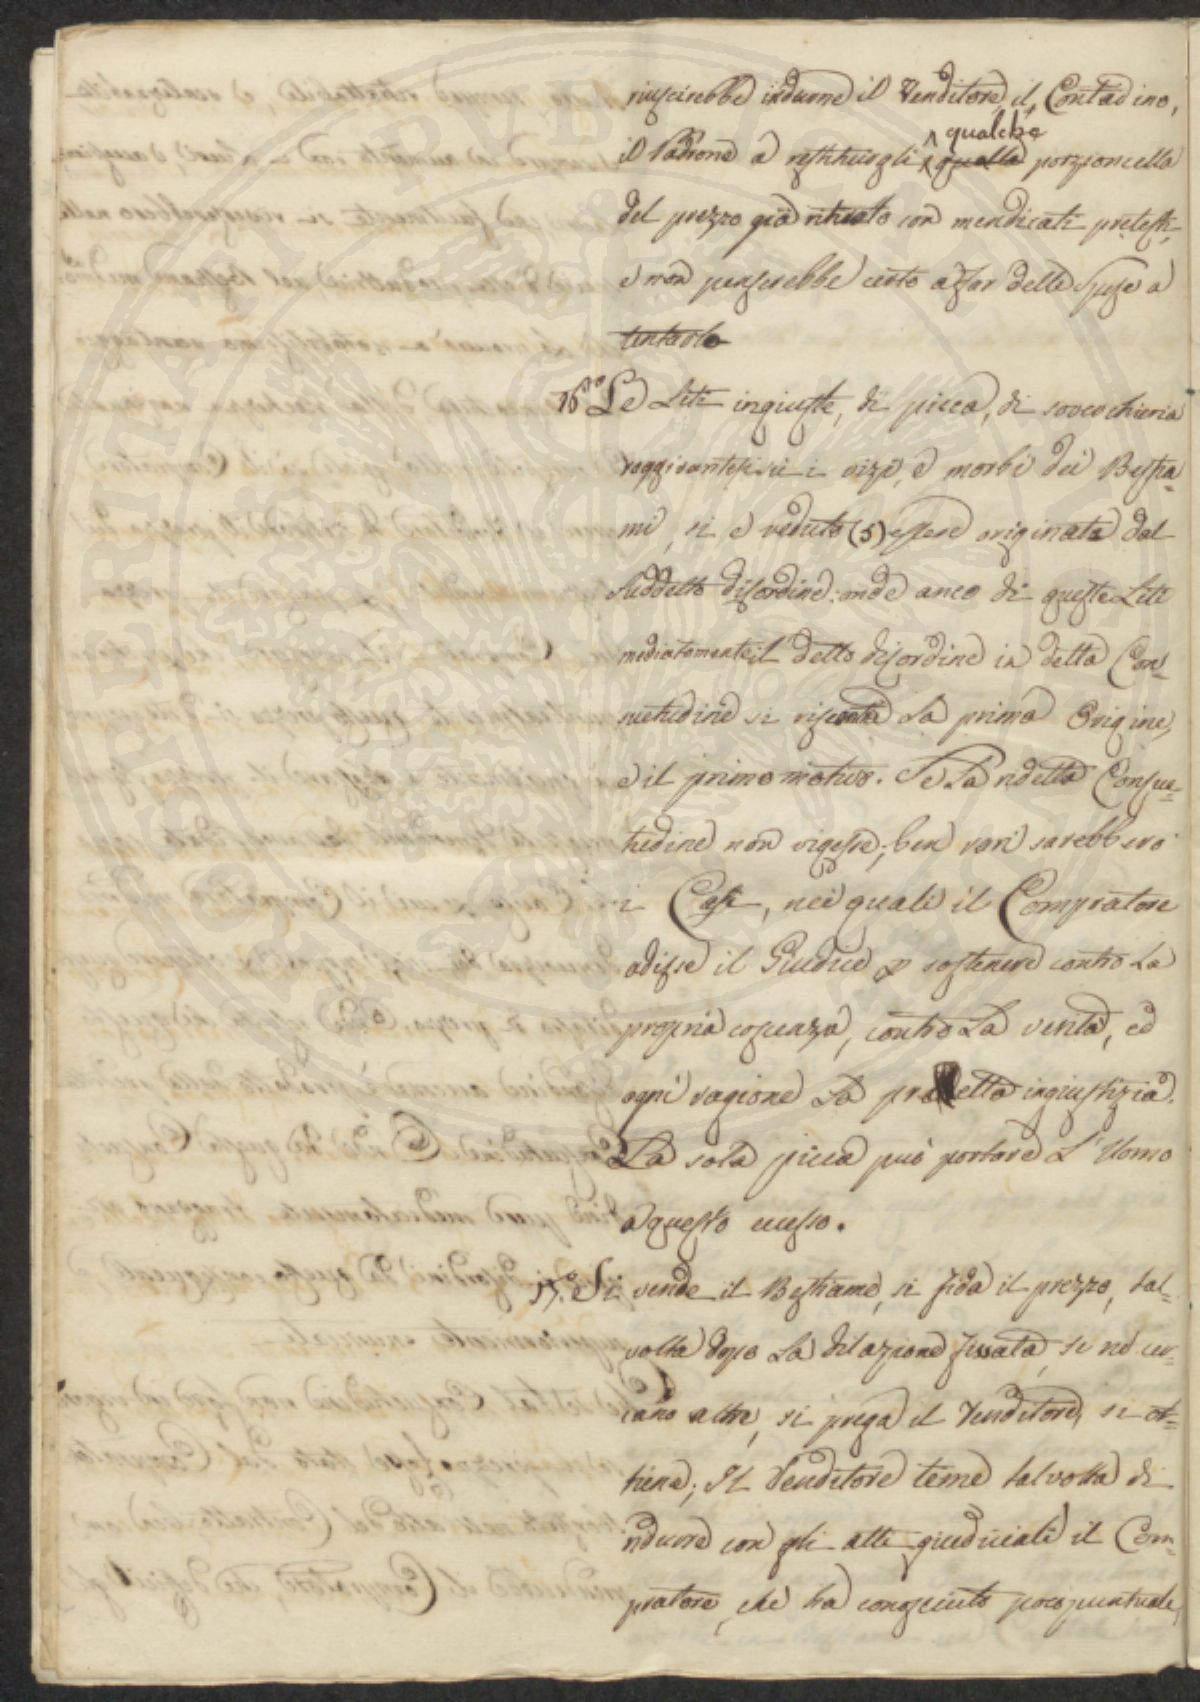 riuscirebbe indurne il Venditore, il Contadino,
qualche
il Padrone a restituirgli quella porzioncella
del prezzo già ritirato con mendicati pretesti,
e non penserebbe certo a far delle Spese a
tentarlo
16.mo Le Liti ingiuste, di picca, di soverchieria
raggirantesi sù i vizi, e morbi dei Bestia=
mi, si è veduto (5) essere originate dal
suddetto disordine; onde anco di queste Liti
mediatamente il detto disordine in detta Con=
suetudine si riscontra La prima Origine,
e il primo motivo. Se La ridetta Consue=
tudine non vigesse, ben rari sarebbero
i Casi, nei quali il Compratore
adisse il Giudice p sostenere contro La
propria coscienza, contro La verità, ed
ogni ragione La predetta ingiustizia.
La sola picca può portare L'Uomo
a questo eccesso.
17.º Si vende il Bestiame, si fida il prezzo, tal=
volta dopo La dilazione fissata, se ne cer=
cano altre, si prega il Venditore, si ot=
tiene; Il Venditore teme talvolta di
ridurre con gli atti giudiciali il Com=
pratore, che ha conosciuto poco puntuale,